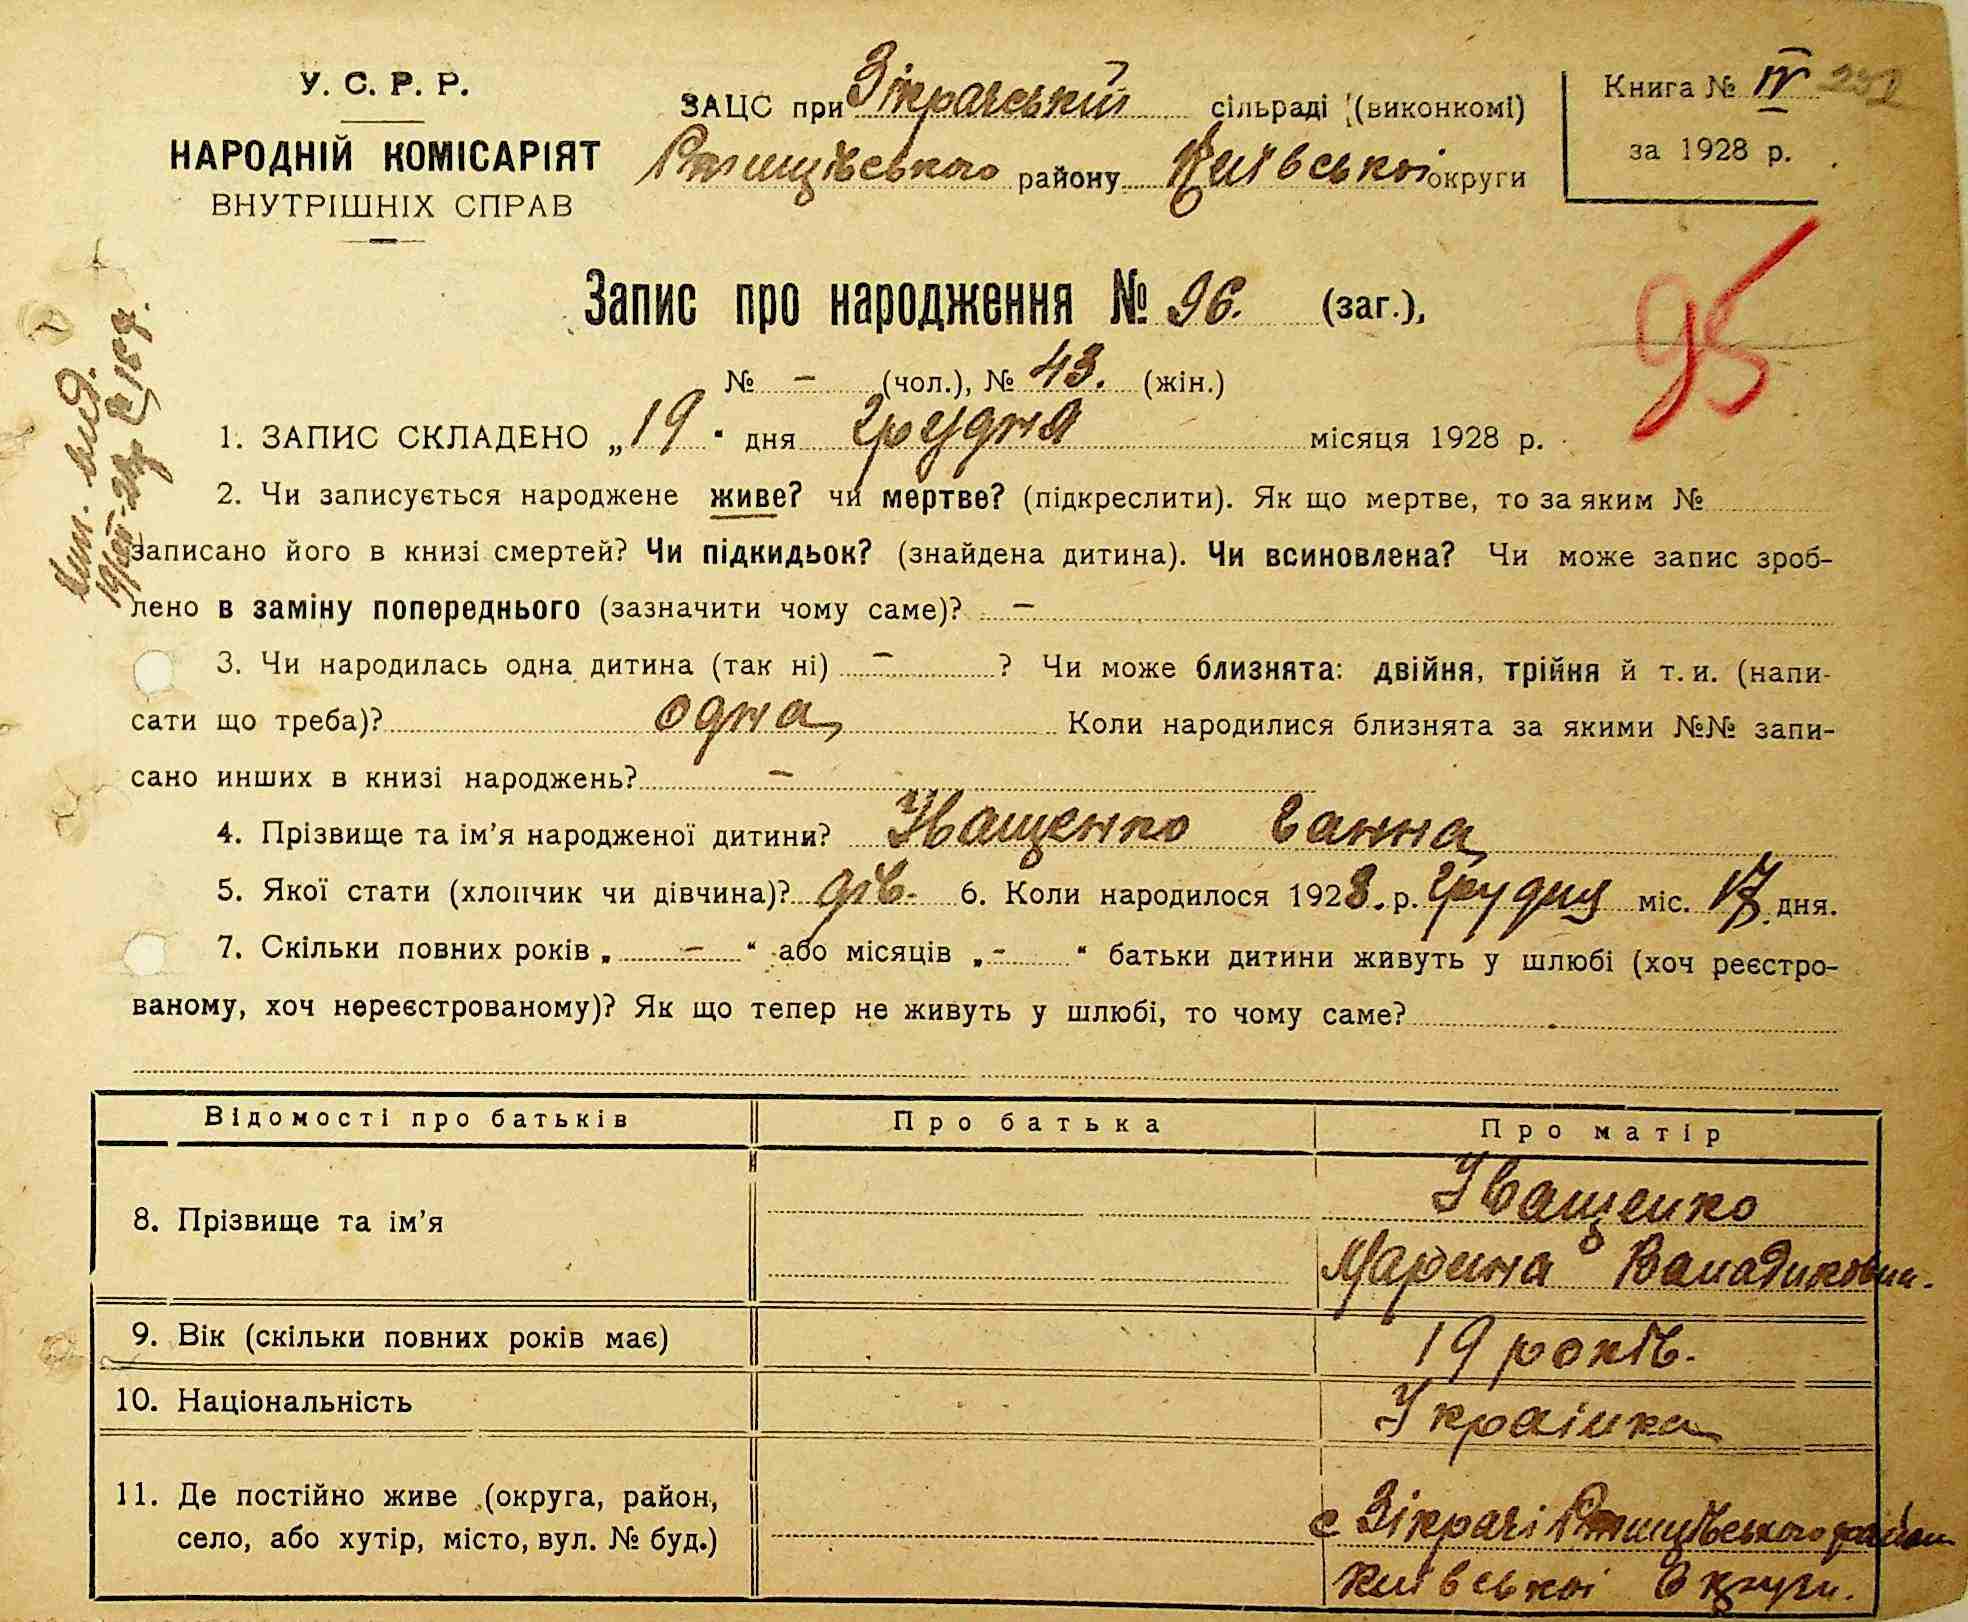 У. С. Р. Р.
НАРОДНІЙ КОМІСАРІЯТ
ВНУТРІШНІХ СПРАВ
ЗАЦС при Зікрачській сільраді (виконкомі)
Ржищівського району Київської округи
Книга № IV 232
за 1928 р.
95
Запис про народження № 96. (заг.),
№ – (чол.), № 43. (жін.)
1. ЗАПИС СКЛАДЕНО „19" дня грудня місяця 1928 р.
2. Чи записується народжене живе? чи мертве? (підкреслити). Як що мертве, то за яким №
записано його в книзі смертей? Чи підкидьок? (знайдена дитина). Чи всиновлена? Чи може запис зроб-
лено в заміну попереднього (зазначити чому саме)? –
3. Чи народилась одна дитина (так ні) – ? Чи може близнята: двійня, трійня й т. и. (напи-
сати що треба)? одна Коли народилися близнята за якими №№ запи-
сано инших в книзі народжень? –
4. Прізвище та ім'я народженої дитини? Іващенко Ганна
5. Якої стати (хлопчик чи дівчина)? дів. 6. Коли народилося 1928. р. грудня міс. 17 дня.
7. Скільки повних років „ – " або місяців „ - " батьки дитини живуть у шлюбі (хоч реєстро-
ваному, хоч нереєстрованому)? Як що тепер не живуть у шлюбі, то чому саме?
Відомості про батьків Про батька Про матір
8. Прізвище та ім'я Іващенко
Марина
9. Вік (скільки повних років має) 19 років.
10. Національність Українка
11. Де постійно живе (округа, район,
село, або хутір, місто, вул. № буд.)
с Зікрачі Ржищівського район
Київської Округи.